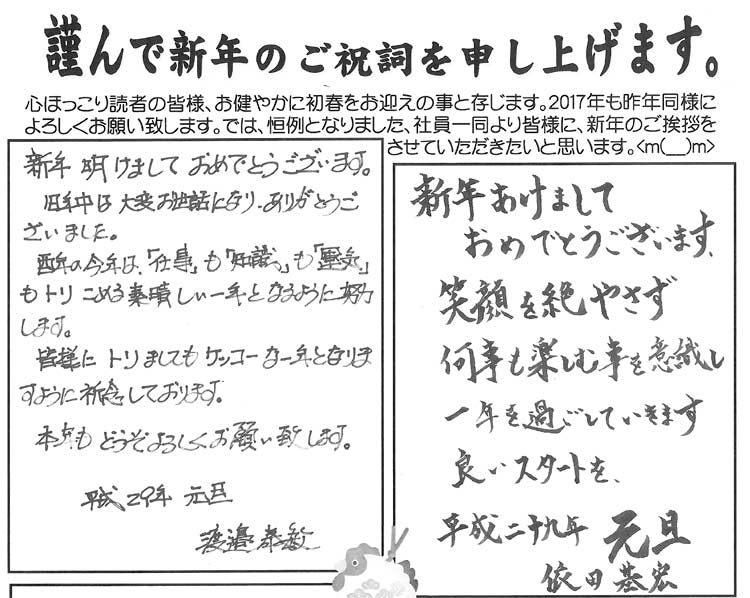 謹んで新年のご祝詞を申し上げます。
心ほっこり読者の皆様、お健やかに初春をお迎えの事と存じます。2017年も昨年同様に
よろしくお願い致します。では、恒例となりました、社員一同より皆様に、新年のご挨拶を
させていただきたいと思います。<m(__)m>
新年 明けまして おめでとうございます。
旧年中は 大変お世話になり、ありがとうご
ざいました。
酉年の今年は、「仕事」も「知識」も「運気」
もトリ こめる素晴しい一年となるように努力
します。
皆様に トリましてもケッコーな一年となりま
すように祈念しております。
本年も どうぞよろしくお願い致します。
平成29年 元旦
渡邉泰敏
新年あけまして
おめでとうございます、
笑顔を絶やさず
何事も楽しむ事を意識し
一年を過ごしていきます
良いスタートを、
平成二十九年 元旦
依田基宏